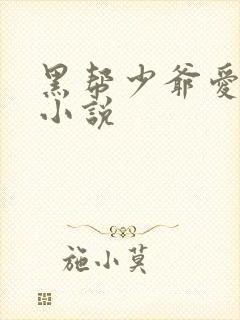 黑帮少爷愛
小説
施小莫